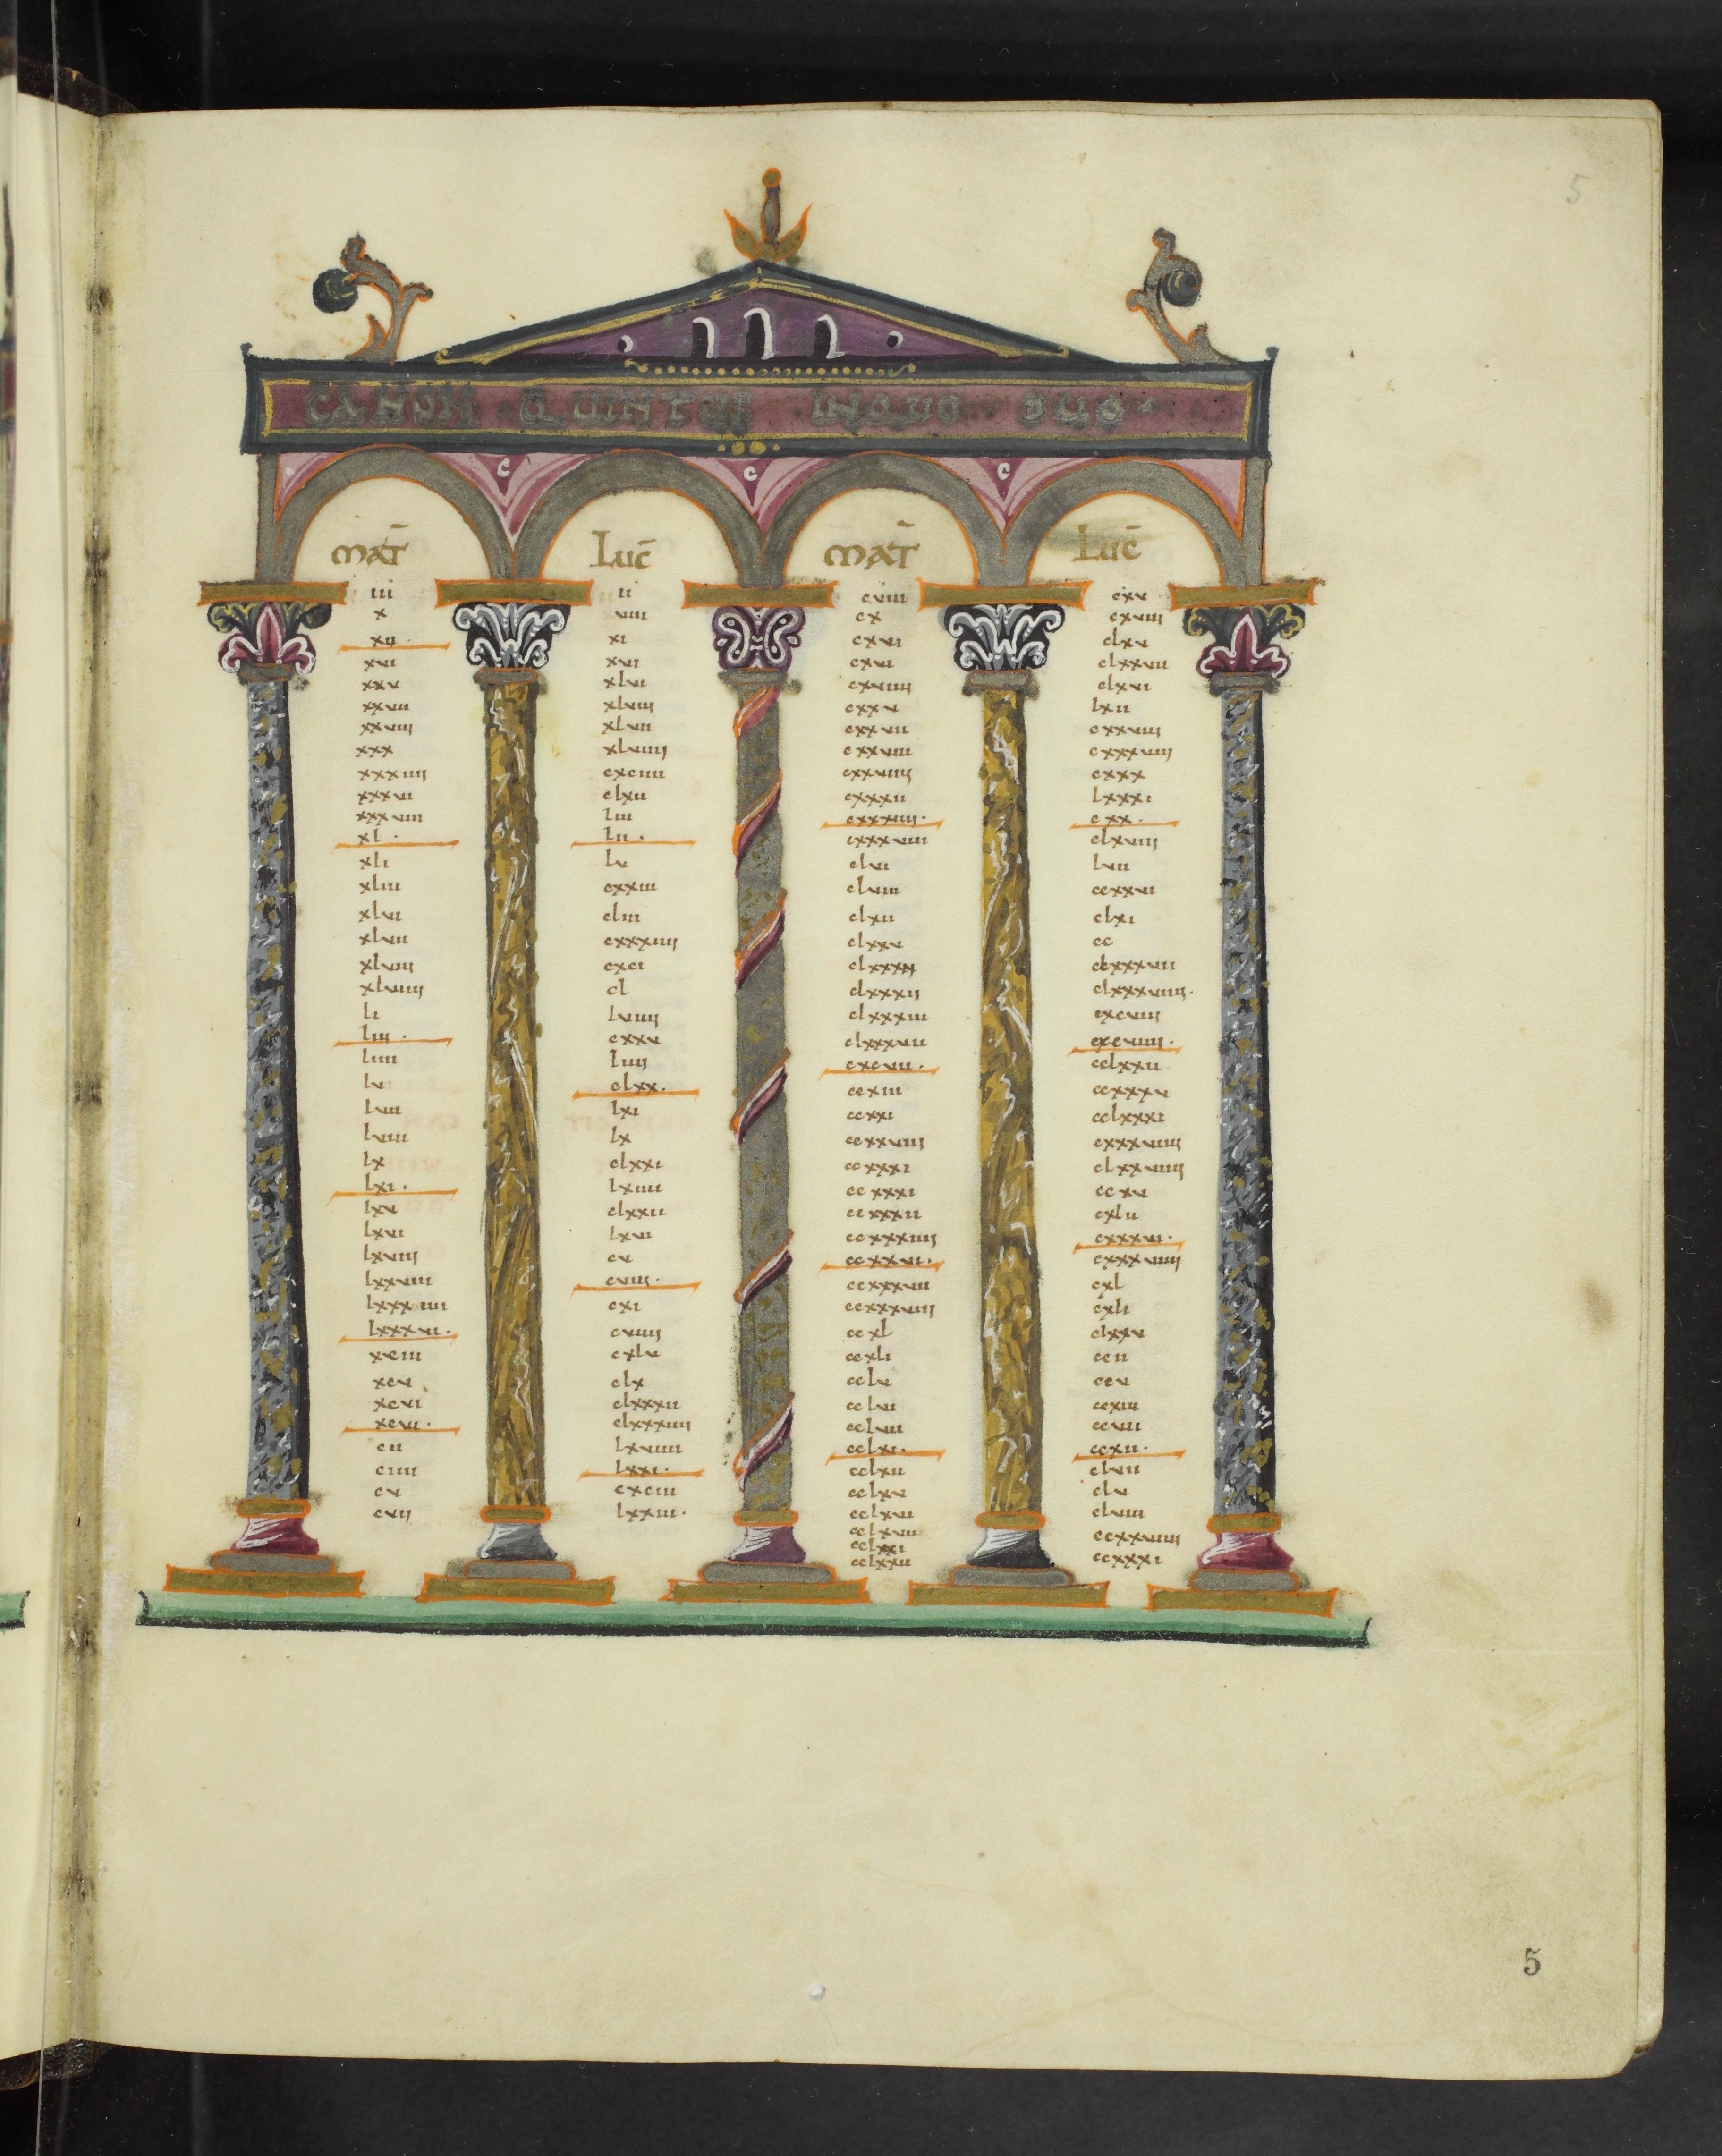 CANON QUINTUS IN QUO DUO
MAT
iii
x
xii.
xvi
xxv
xxvii
xxviii
xxx
xxxiiii
xxxvi
xxxviii
xl.
xli
xliii
xlvi
xlvii
xlviii
xlviiii
li
liii.
liiii
lv
lvii
lviii
lx
lxi.
lxv
lxvi
lxviii
lxxviii
lxxxiiii
lxxxvi.
xciii
xcv
xcvi
xcvii.
cii
ciiii
cv
cvii
Luc
ii
viii
xi
xvi
xlvi
xlviii
xlvii
xlviiii
cxciiii
clxii
liii
lii.
lv
cxxiii
cliii
cxxxiiii
cxci
cl
lviiii
cxxv
liiii
clxx.
lxi
lx
clxxi
lxiiii
clxxii
lxvi
cv
cviii.
cxi
cviiii
cxlv
clx
clxxxii
clxxxiiii
lxviiii
lxxi.
cxciii
lxxiii.
MAT
cviii
cx
cxvi
cxviiii
cxxv
cxxvii
cxxviii
cxxviiii
cxxxii
cxxxiiii.
cxxxviii
clvi
clviii
clxii
clxxv
clxxxii
clxxxiii
clxxxvii
cxcvii.
ccxiii
ccxxi
ccxxviiii
ccxxxi
ccxxxi
ccxxxii
ccxxxiiii
ccxxvi.
ccxxxvii
ccxxxviii
ccxl
ccxli
cclv
cclvi
cclvii
cclxi.
cclxii
cclxv
cclxvi
cclxvii
cclxxi
cclxxii
Luc
cxv
cxviii
clxv
clxxvii
clxvi
lxii
cxxviii
cxxxviiii
cxxx
lxxxi
cxx.
clxviii
lvii
ccxxvi
clxi
cc
clxxxvii
clxxxviiii.
cxcviii
cxcviiii.
cclxxii
ccxxxv
cclxxxi
cxxxviiii
clxxviiii
ccxv
cxlii
cxxxvi.
cxxxviiii
cxl
cxli
clxxv
ccii
ccv
ccxiii
ccvii
ccxii.
clvii
clv
clviii
ccxxviiii
ccxxxi
5
5